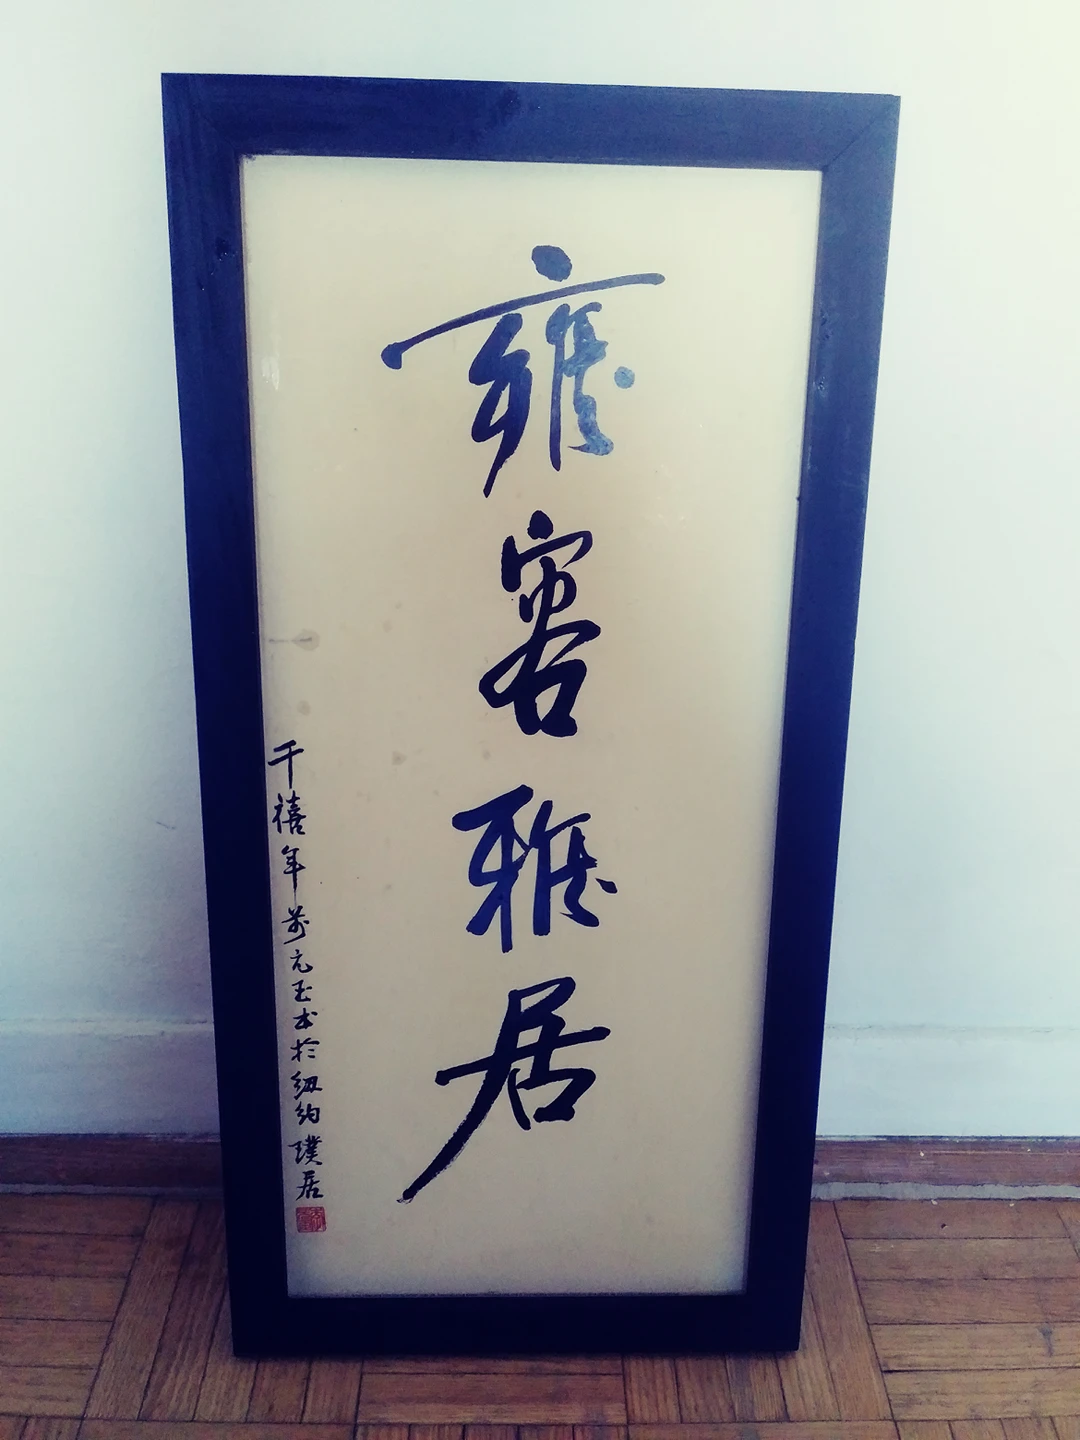 雍容雅居
千禧年万元玉本於纽约璞居